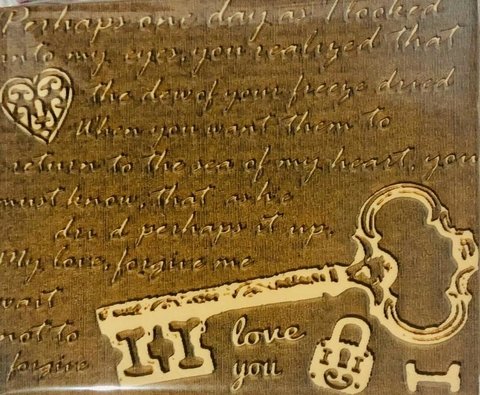 Perhaps one day as I looked
into my eyes, you realized that
the dew of your freeze dried
When you want them to
return to the sea of my heart, you
must know, that as he
dri d perhaps it up.
My love, forgive me
wait
not to
forgive
love
you